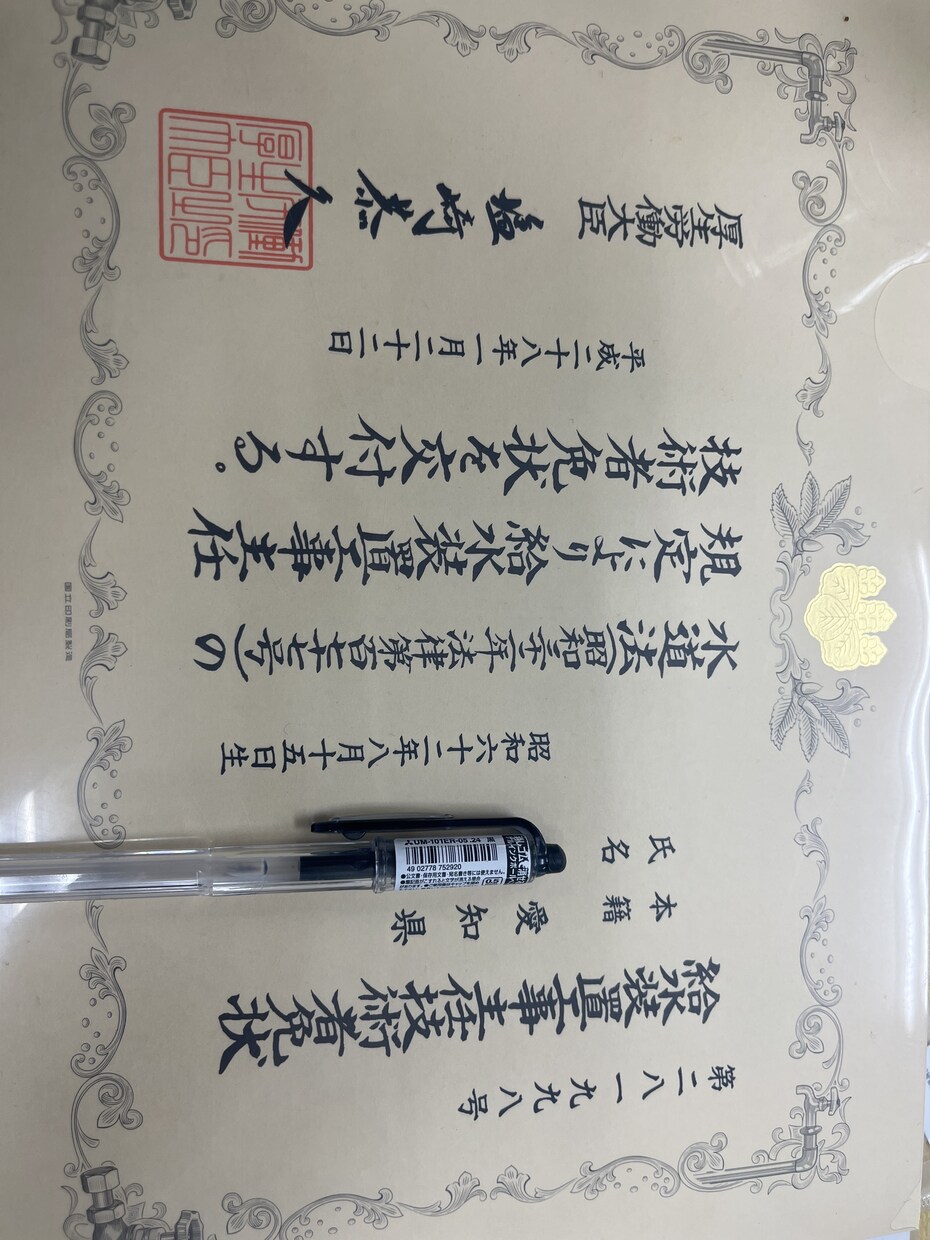 第二八一九九八号
給水装置工事主任技術者免状
本籍 愛知県
氏名
昭和六十二年八月十五日生
水道法(昭和三十二年法律第百七十七号)の
規定により給水装置工事主任
技術者免状を交付する。
平成二十八年一月二十二日
厚生労働大臣 塩崎恭久
国立印刷局製造
UM-101ER-05 .24
49 02778 752920
0.5